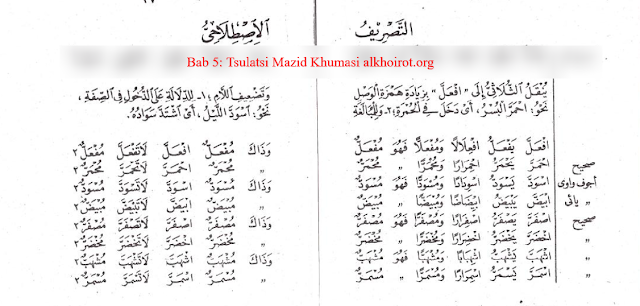 التَّصْرِيْفُ
الْاِصْطِلَاحِيُّ
Bab 5: Tsulatsi Mazid Khumasi alkhoirot.org
يُنْقَلُ الثُّلَاثِيُّ إِلَى "اِفْعَلَّ" بِزِيَادَةِ هَمْزَةِ الْوَصْلِ
وَتَضْعِيْفِ اللَّامِ، ١- لِلدِّلَالَةِ عَلَى الدُّخُوْلِ فِى الصِّفَةِ،
نَحْوُ: اِحْمَرَّ الْبُسْرُ، أَىْ دَخَلَ فِى الْحُمْرَةِ، ٢- وَلِلْمُبَالَغَةِ
نَحْوُ: اِسْوَدَّ اللَّيْلُ، أَىْ اِشْتَدَّ سَوَادُهُ.
اِفْعَلَّ يَفْعَلُّ اِفْعِلَالًا وَمُفْعَلًّا فَهُوَ مُفْعَلٌّ وَذَاكَ مُفْعَلٌّ اِفْعَلَّ لَاتَفْعَلَّ مُفْعَلٌّ ٢
صحيح اِحْمَرَّ يَحْمَرُّ اِحْمِرَارًا وَمُحْمَرًّا " مُحْمَرٌّ " مُحْمَرٌّ اِحْمَرَّ لَاتَحْمَرَّ مُحْمَرٌّ ٢
أجوف واوى اِسْوَدَّ يَسْوَدُّ اِسْوِدَادًا وَمُسْوَدًّا فَهُوَ مُسْوَدٌّ وَذَاكَ مُسْوَدٌّ اِسْوَدَّ لَاتَسْوَدَّ مُسْوَدٌّ ٢
" يائى اِبْيَضَّ يَبْيَضُّ اِبْيِضَاضًا وَمُبْيَضًّا " مُبْيَضٌّ " مُبْيَضٌّ اِبْيَضَّ لَاتَبْيَضَّ مُبْيَضٌّ ٢
صحيح اِصْفَرَّ يَصْفَرُّ اِصْفِرَارًا وَمُصْفَرًّا فَهُوَ مُصْفَرٌّ وَذَاكَ مُصْفَرٌّ اِصْفَرَّ لَاتَصْفَرَّ مُصْفَرٌّ ٢
" اِخْضَرَّ يَخْضَرُّ اِخْضِرَارًا وَمُخْضَرًّا " مُخْضَرٌّ " مُخْضَرٌّ اِخْضَرَّ لَاتَخْضَرَّ مُخْضَرٌّ ٢
" اِشْهَبَّ يَشْهَبُّ اِشْهِبَابًا وَمُشْهَبًّا فَهُوَ مُشْهَبٌّ وَذَاكَ مُشْهَبٌّ اِشْهَبَّ لَاتَشْهَبَّ مُشْهَبٌّ ٢
" اِسْمَرَّ يَسْمَرُّ اِسْمِرَارًا وَمُسْمَرًّا " مُسْمَرٌّ " مُسْمَرٌّ اِسْمَرَّ لَاتَسْمَرَّ مُسْمَرٌّ ٢